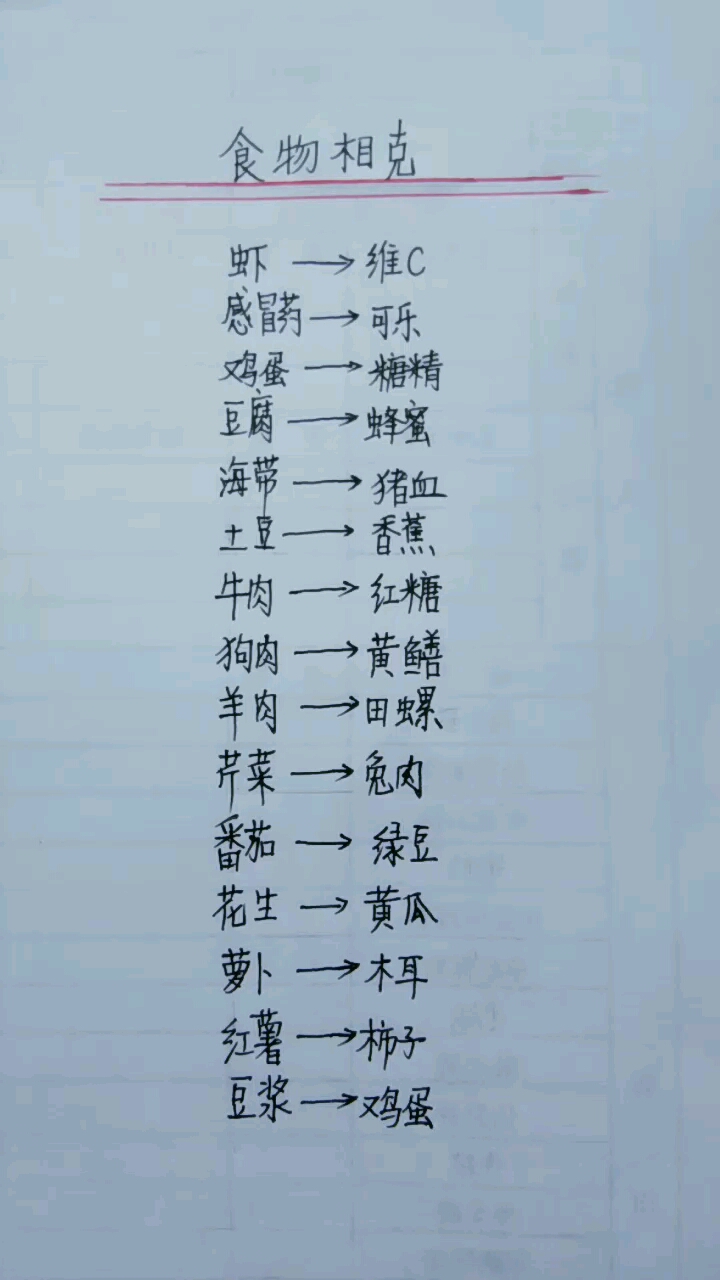 食物相克
虾→维C
感冒药→可乐
鸡蛋→糖精
豆腐→蜂蜜
海带→猪血
土豆→香蕉
牛肉→红糖
狗肉→黄鳝
羊肉→田螺
芹菜→兔肉
番茄→绿豆
花生→黄瓜
萝卜→木耳
红薯→柿子
豆浆→鸡蛋